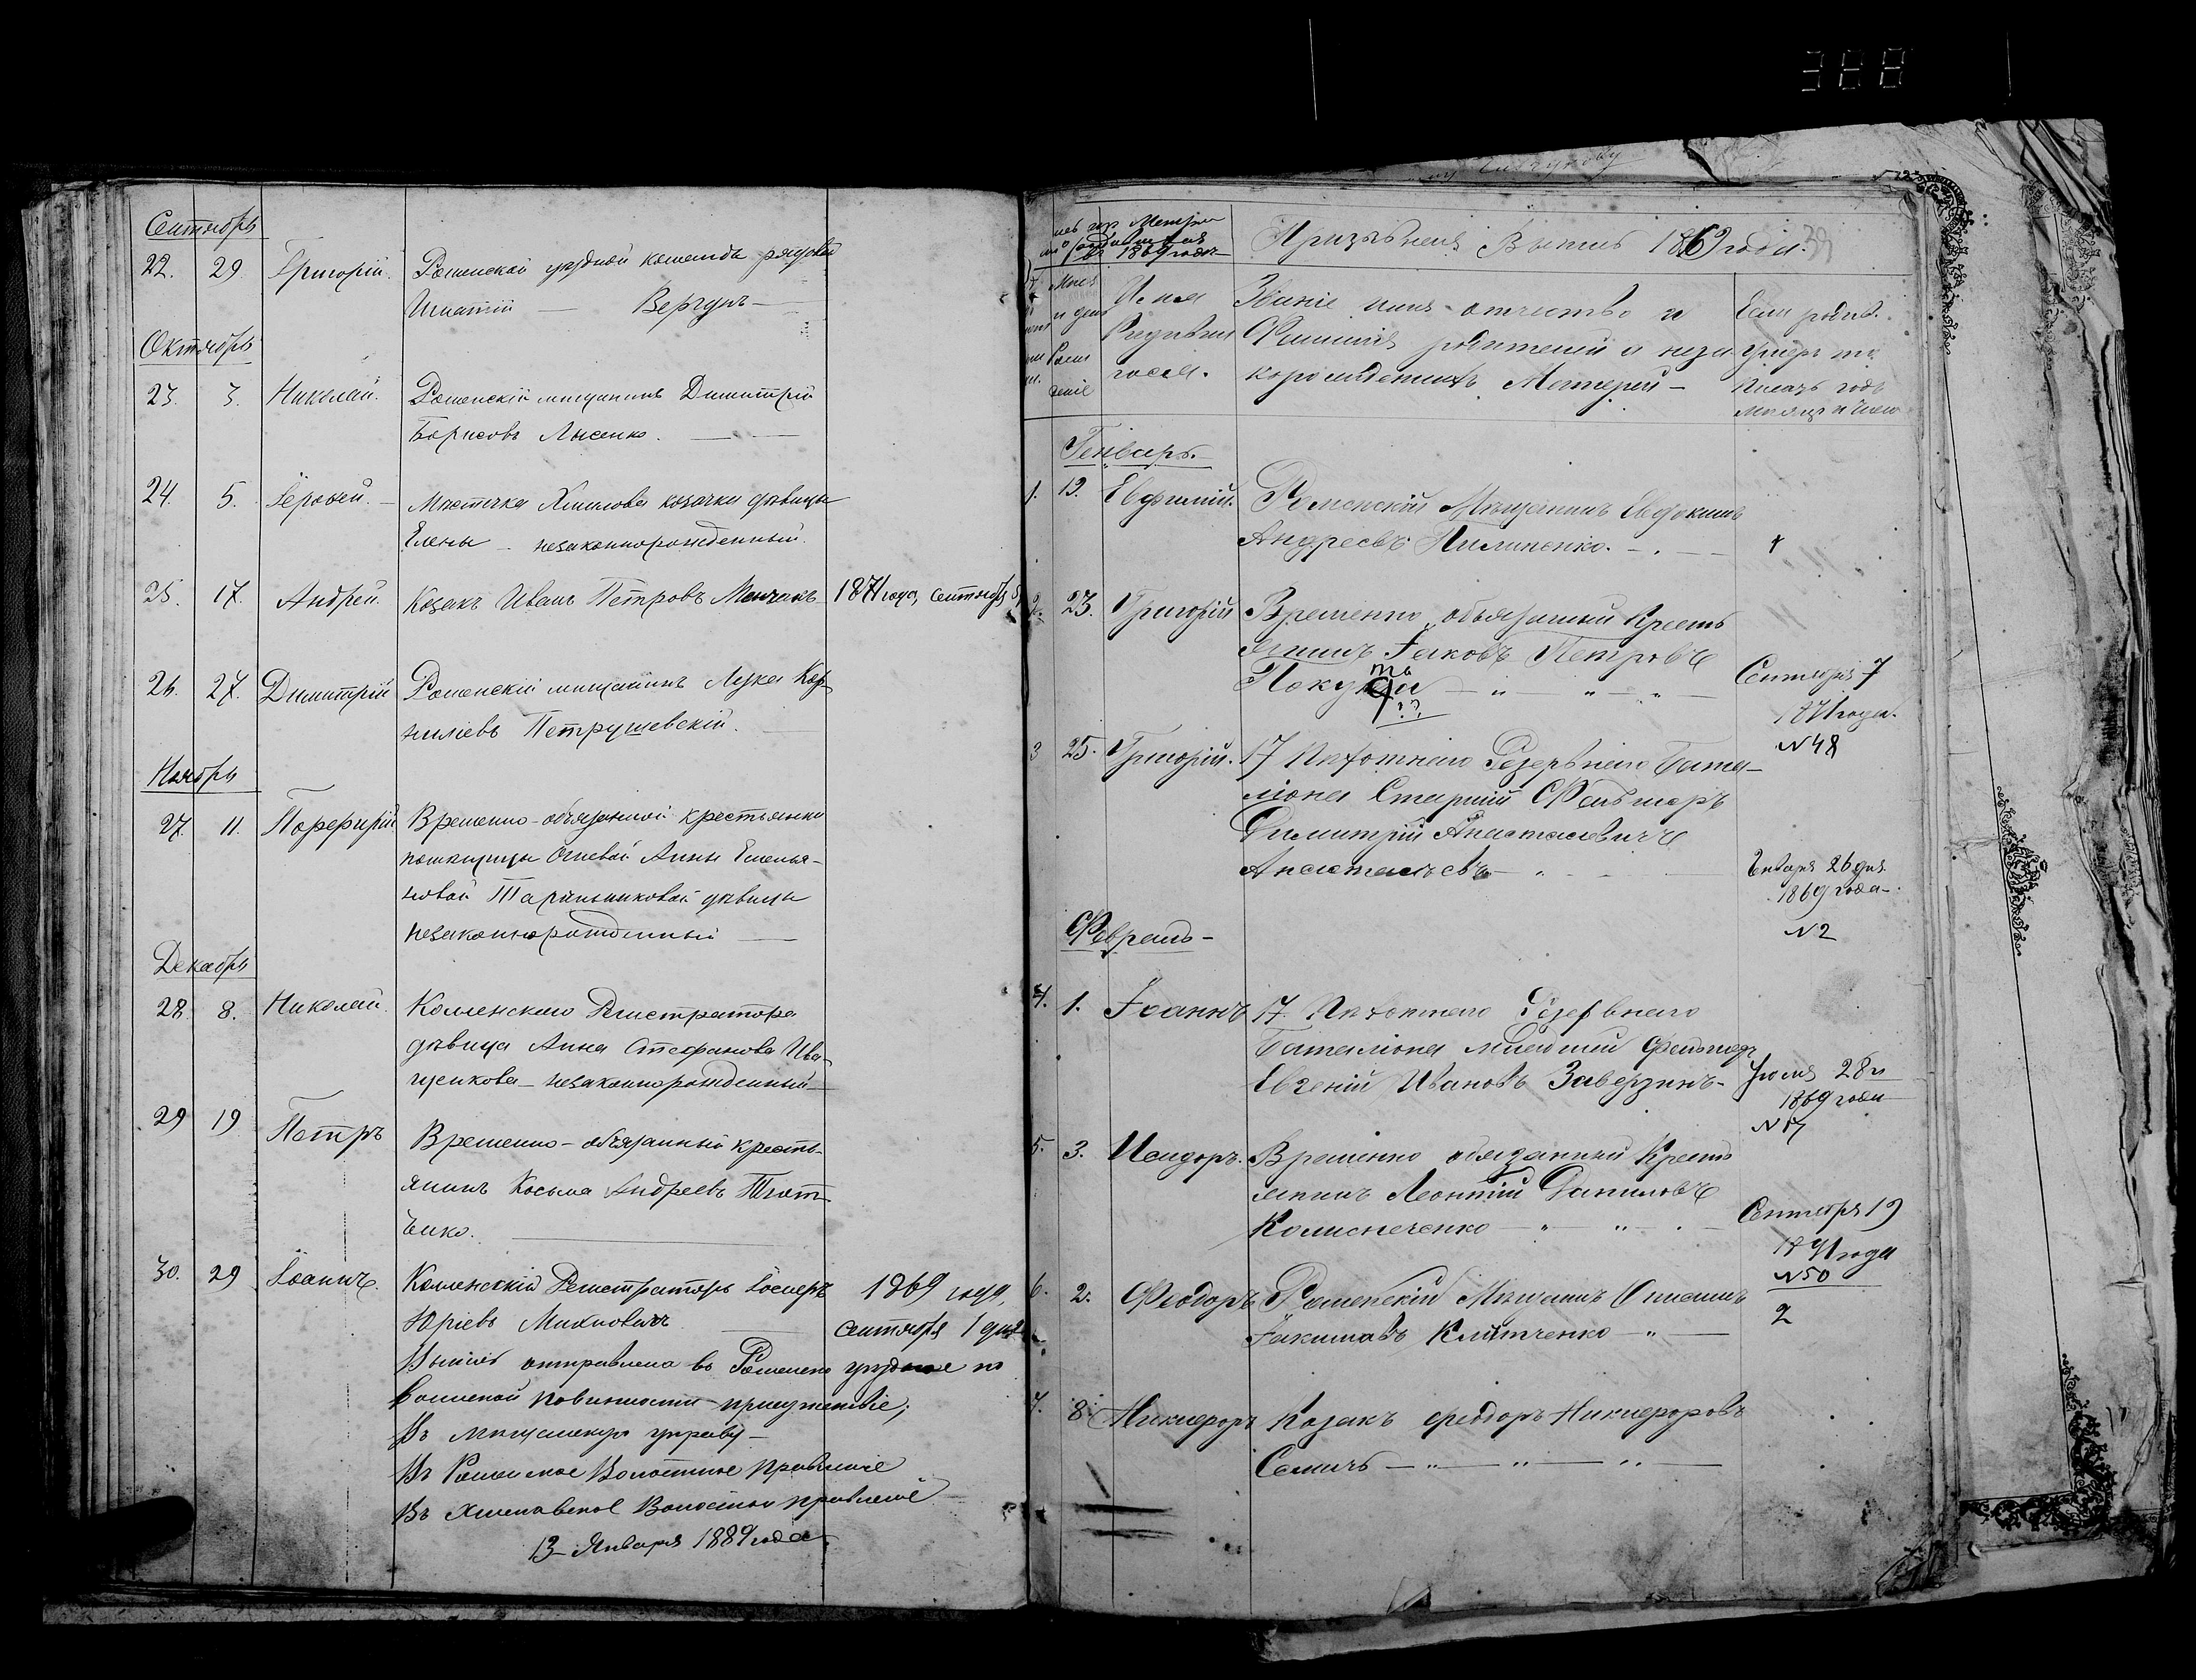 388
Сентябрь
22. 29. Григорій. Роменской уѣздной команды рядовой
Игнатій — Вергунъ —
Октябрь
23. 3. Николай. Роменскій мищанинъ Димитрій
Борисовъ Лысенко.
24. 5. Іерофей. — Мистечка Хмилова козачки дѣвицы
Елены — незаконнорожденный.
25. 17. Андрей. Козакъ Иванъ Петровъ Менчакъ 1871 года, сентября 5
26. 27. Димитрій Роменскій мищанинъ Лука Кор-
ниліевъ Петрушевскій.
Ноябрь
27. 11. Порфирій Временно-обязанной крестьянки
помищицы Огневой Анны Емелья-
новой дѣвицы
незаконнорожденный —
Декабрь
28. 8. Николай. Коллежскаго Регистратора
дѣвица Анна Стефанова Ива-
щенкова — незаконнорожденный —
29 19 Петръ Временно-обязанный кресть-
янинъ Косьма Андреевъ
енко.
30. 29 Іоаннъ. Коллежскій Регистраторъ Іосифъ 1869 года,
Юріевъ Михновичъ сентября 1 дня
Выпись отправлена въ Роменское уѣздное по
воинской повинности присутствіе;
Въ мищанскую управу —
Въ Роменское Волостное Правленіе
Въ Хмиловское Волостное правленіе
13 Января 1889 года
1869 года
Призывная Выпись 1869 года. 39
Имя Званіе имя отчество и Если родив.
Родивша Фамилія родителей и неза умеръ то
гося. коннорожденныхъ Матерей — писать годъ
мѣсяцъ и число
Генварь.
1. 12. Евфимій. Роменскій Мѣщанинъ Евдокимъ
Андреевъ Пилипенко. —
2. 23. Григорій Временно обязанный Кресть
янинъ Іаковъ Петровъ
Сентября 7
1871 года.
№48
3 25. Григорій. 17 Пѣхотнаго Резервнаго Бата-
ліона Старшій Фельшеръ
Димитрій Анастасіевичъ
Анастасьевъ — Генваря 26 дня
1869 года —
№2
Февраль —
4. 1. Іоаннъ 17 Пѣхотнаго Резервнаго
Баталіона младшій Фельшеръ
Евгеній Ивановъ Заверзинъ — Іюля 28
1869 года
5. 3. Исидоръ. Временно обязанный Кресть
янинъ Леонтій Даниловъ
Колисниченко — Сентября 19
1871 года
№50
6. 2. Феодоръ Роменскій Мѣщанинъ
Іакимовъ Климченко — 2
7. 8. Никифоръ Козакъ Феодоръ Никифоровъ
Семичъ —